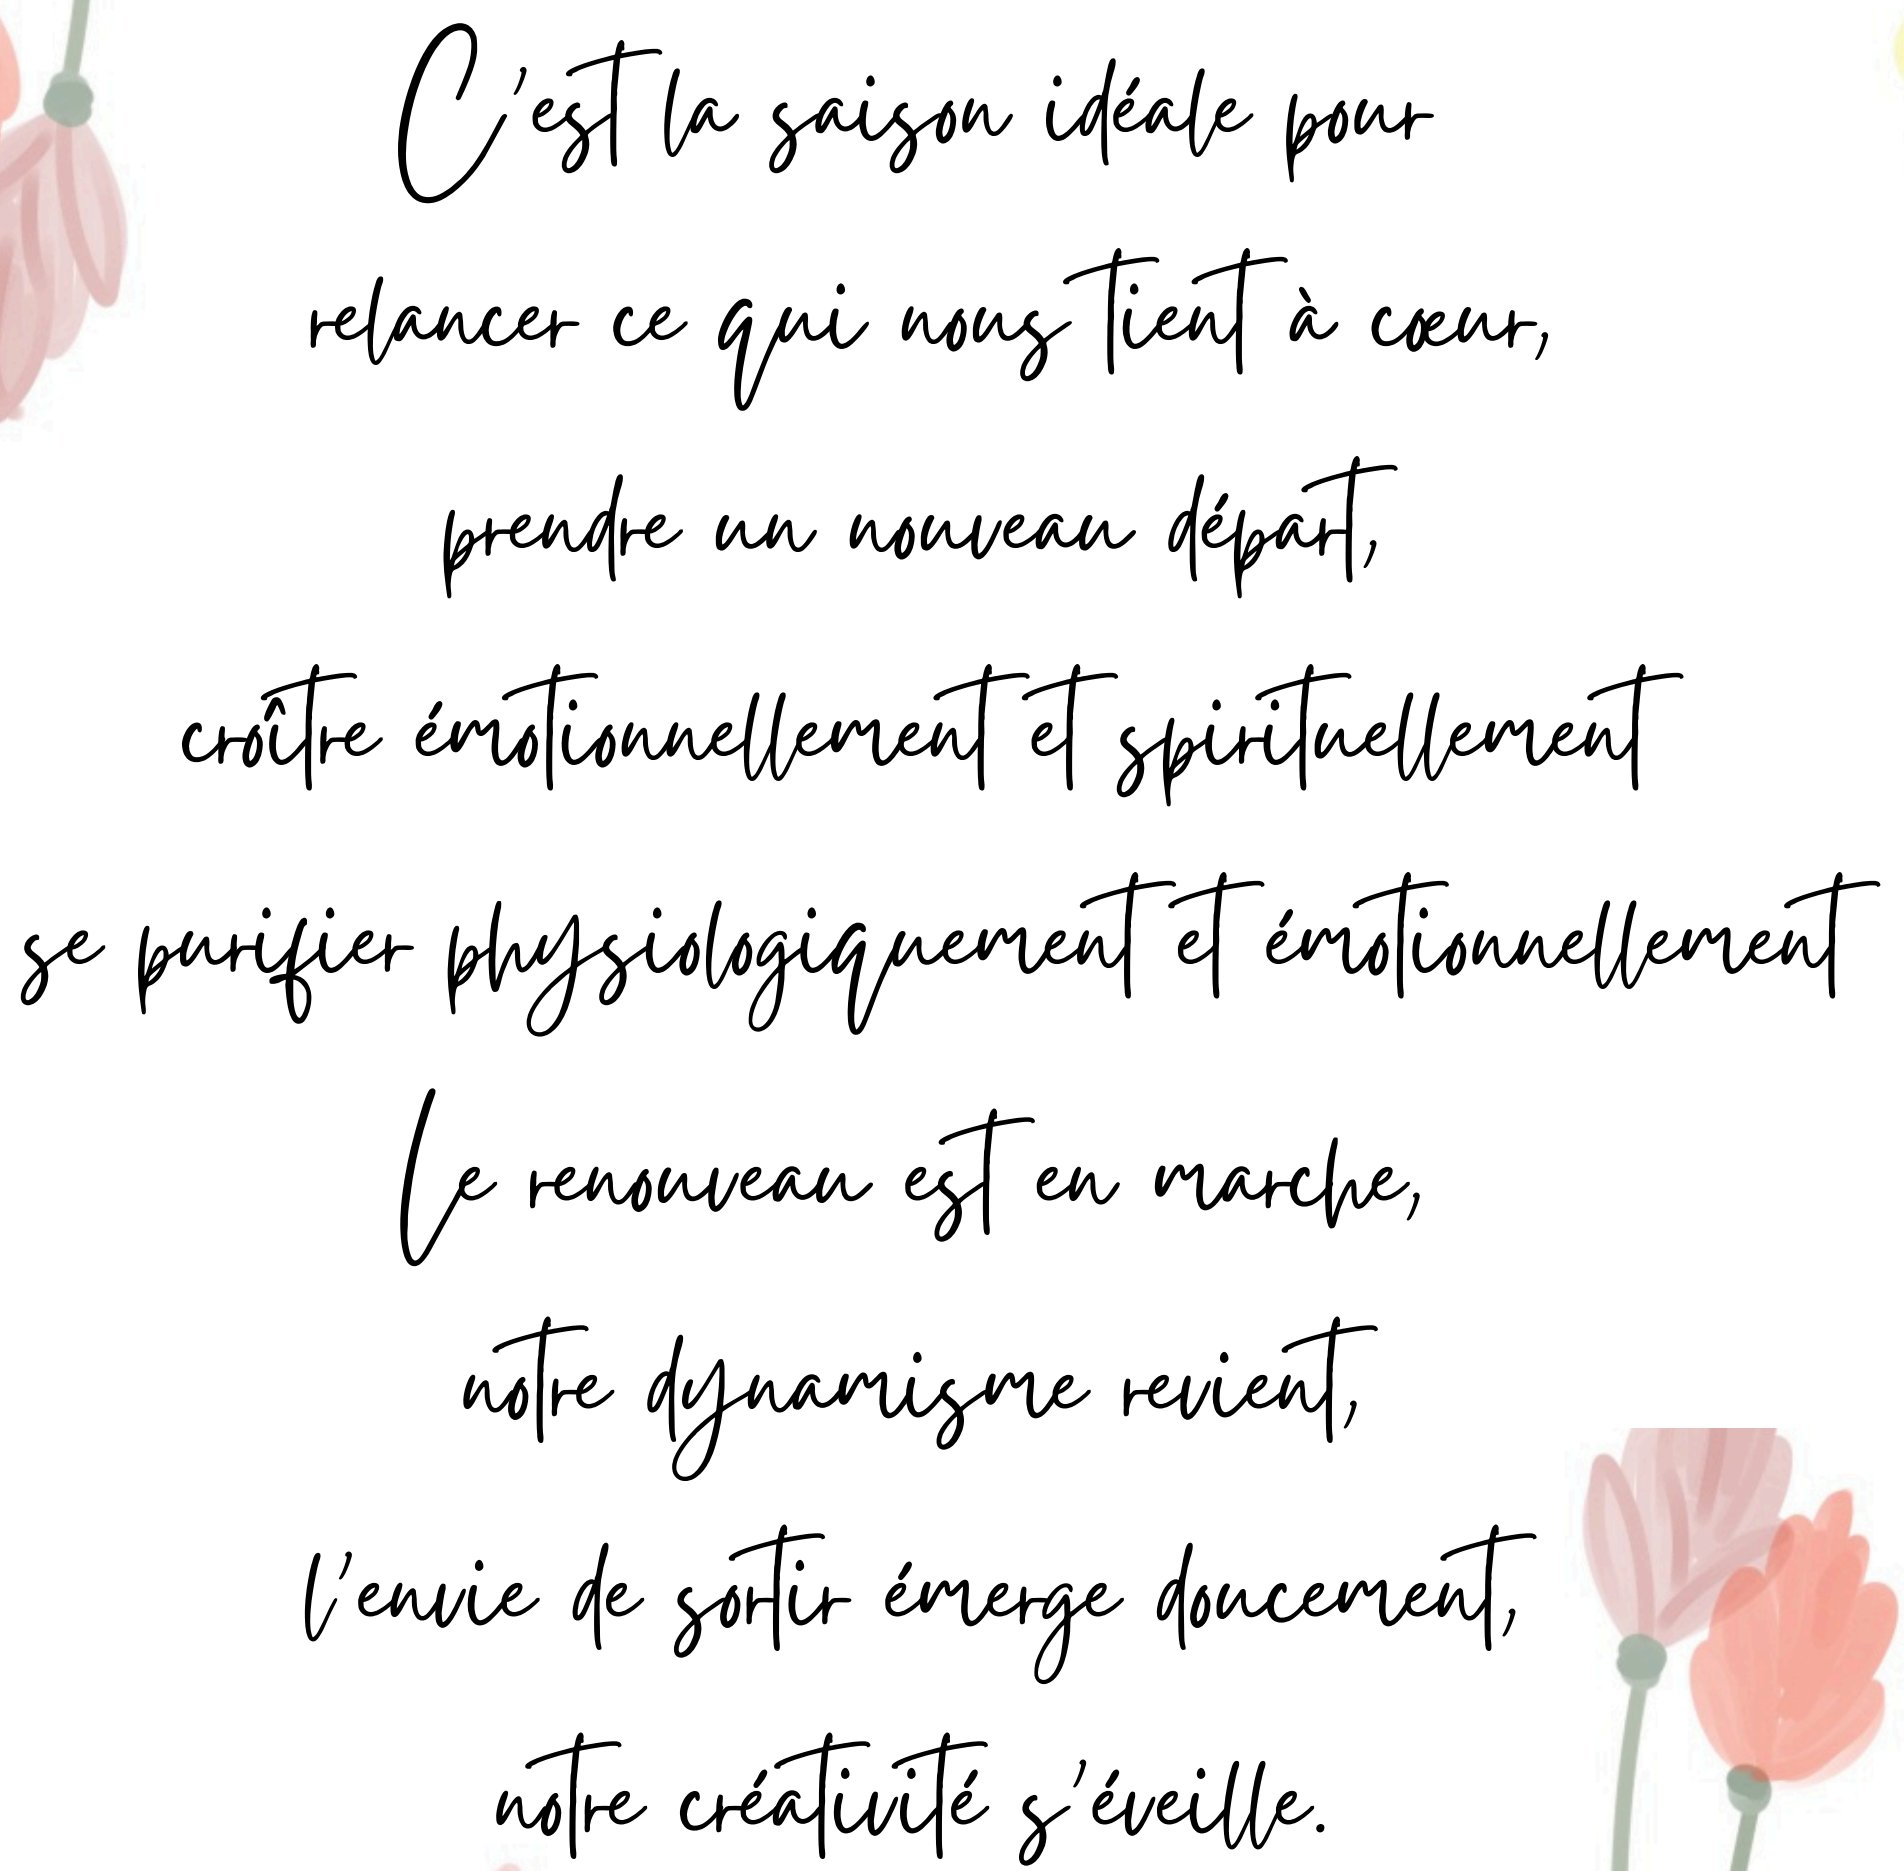 C'est la saison idéale pour
relancer ce qui nous tient à cœur,
prendre un nouveau départ,
croître émotionnellement et spirituellement
se purifier physiologiquement et émotionnellement
Le renouveau est en marche,
notre dynamisme revient,
l'envie de sortir émerge doucement,
notre créativité s'éveille.